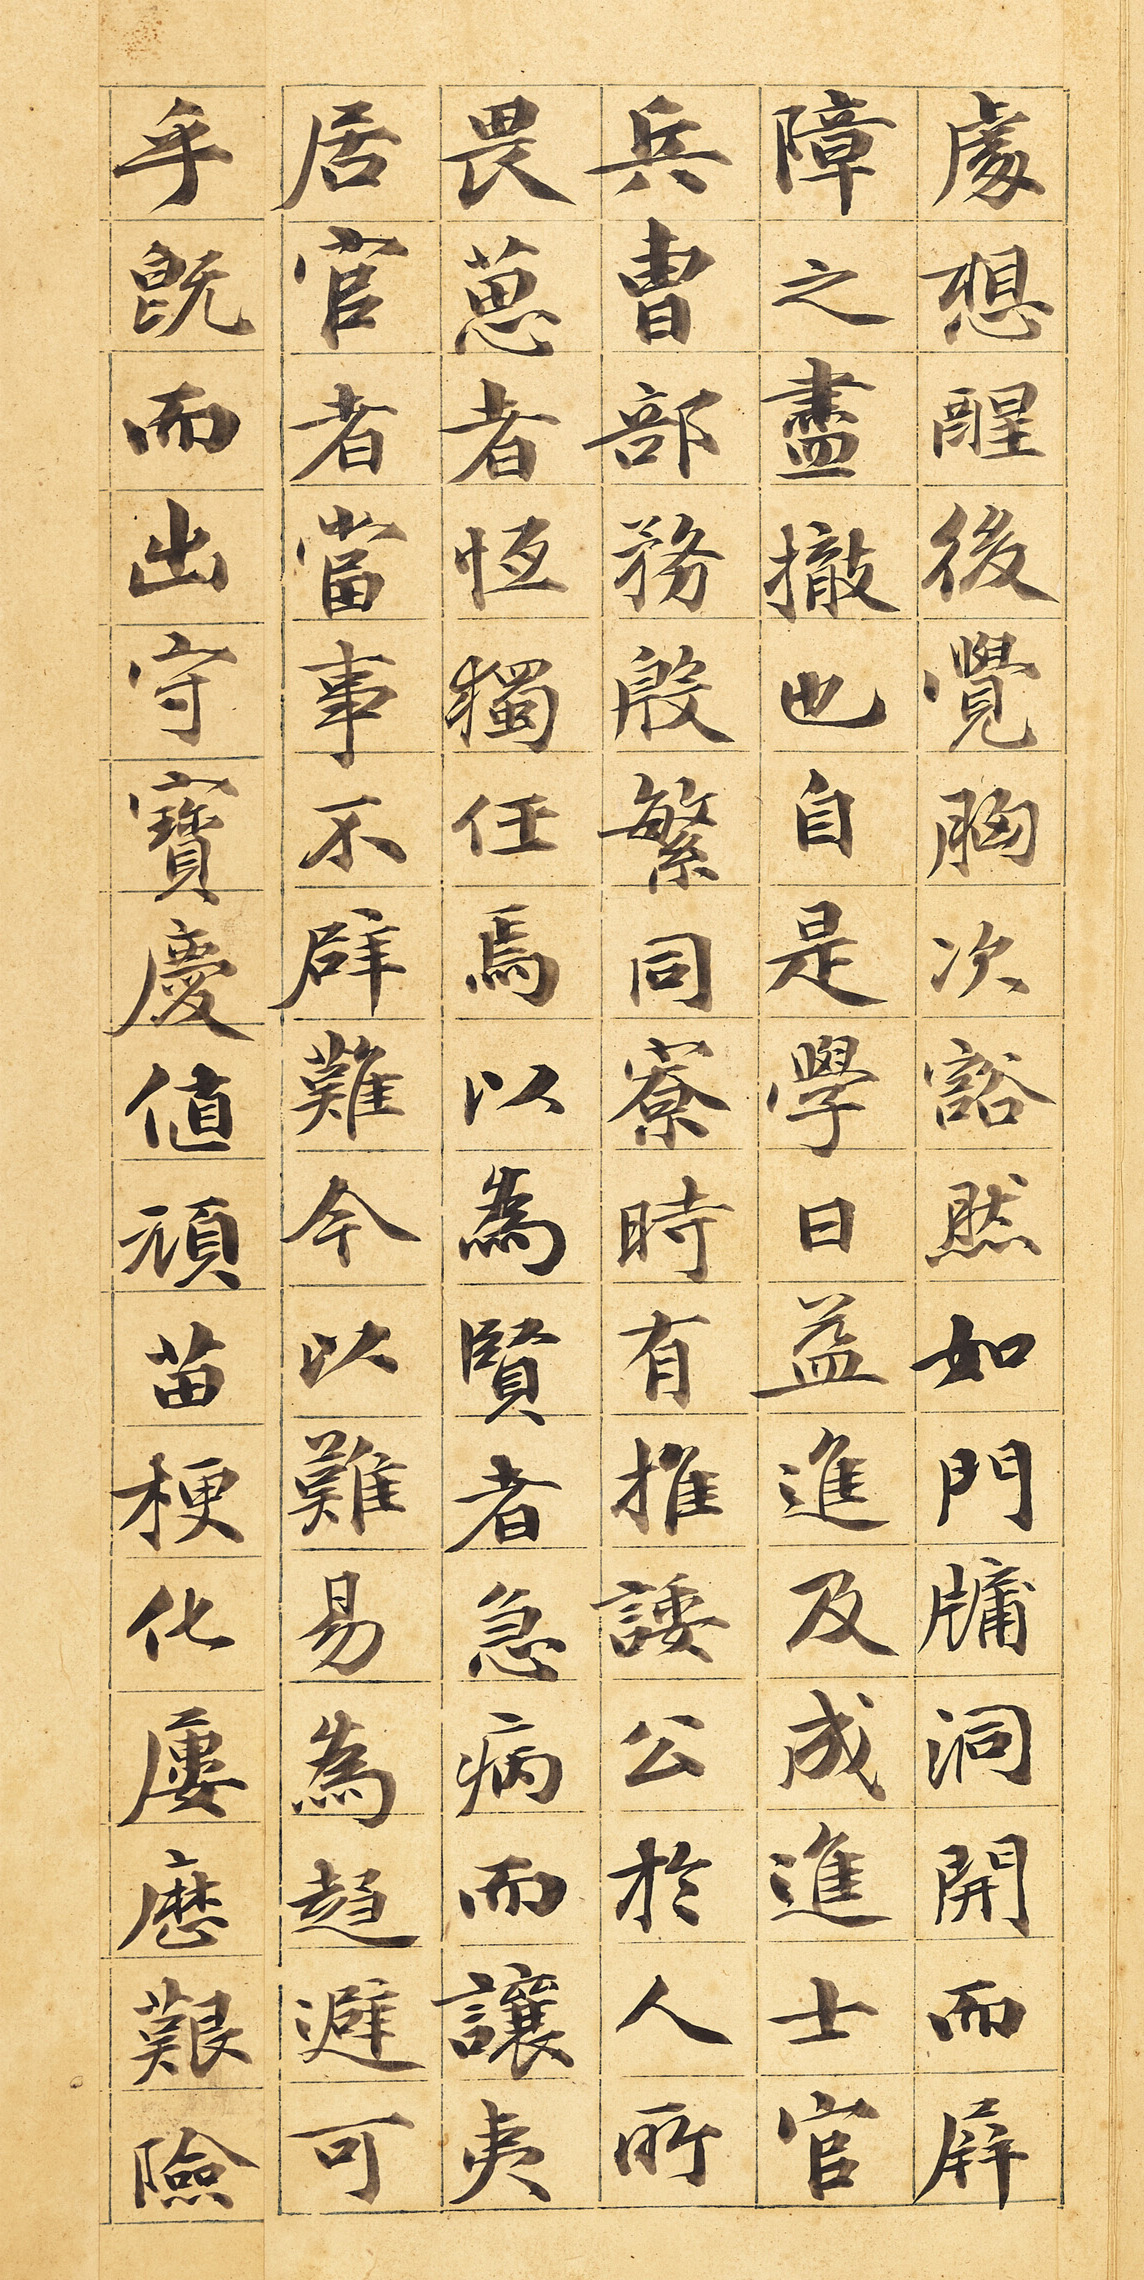 處想醒後覺胸次豁然如門牖洞開而屏
障之盡撤也自是學日益進及成進士官
兵曹部務殷繁同寮時有推諉公於人所
畏葸者恆獨任焉以為賢者急病而讓夷
居官者當事不辟難今以難易為趨避可
乎既而出守寶慶值頑苗梗化屢歷艱險